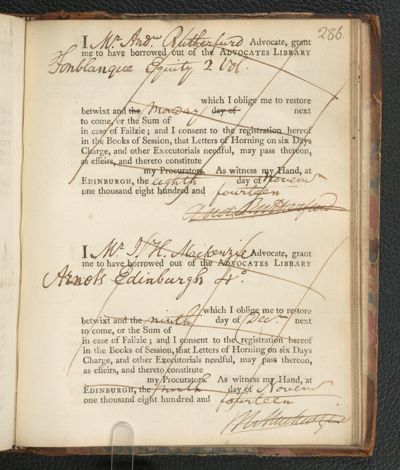 286.
I, Mr. Andw Rutherfurd Advocate, grant
me to have borrowed out of the ADVOCATES LIBRARY
Fonblanque Equity 2 Vol.
which I oblige me to restore
betwixt and the Monday day of next
to come, or the Sum of
in case of Failzie; and I consent to the registration hereof
in the Books of Session, that Letters of Horning on six Days
Charge, and other Executorials needful, may pass thereon,
as effeirs, and thereto constitute
my Procurators. As witness my Hand, at
EDINBURGH, the eighth day of Novemr
one thousand eight hundred and fourteen
Andw Rutherfurd
I, Mr. J. H. Mackenzie Advocate, grant
me to have borrowed out of the ADVOCATES LIBRARY
Arnots Edinburgh 4o.
which I oblige me to restore
betwixt and the ninth day of Decr. next
to come, or the Sum of
in case of Failzie; and I consent to the registration hereof
in the Books of Session, that Letters of Horning on six Days
Charge, and other Executorials needful, may pass thereon,
as effeirs, and thereto constitute
my Procurators. As witness my Hand, at
EDINBURGH, the ninth day of Novemr
one thousand eight hundred and fourteen